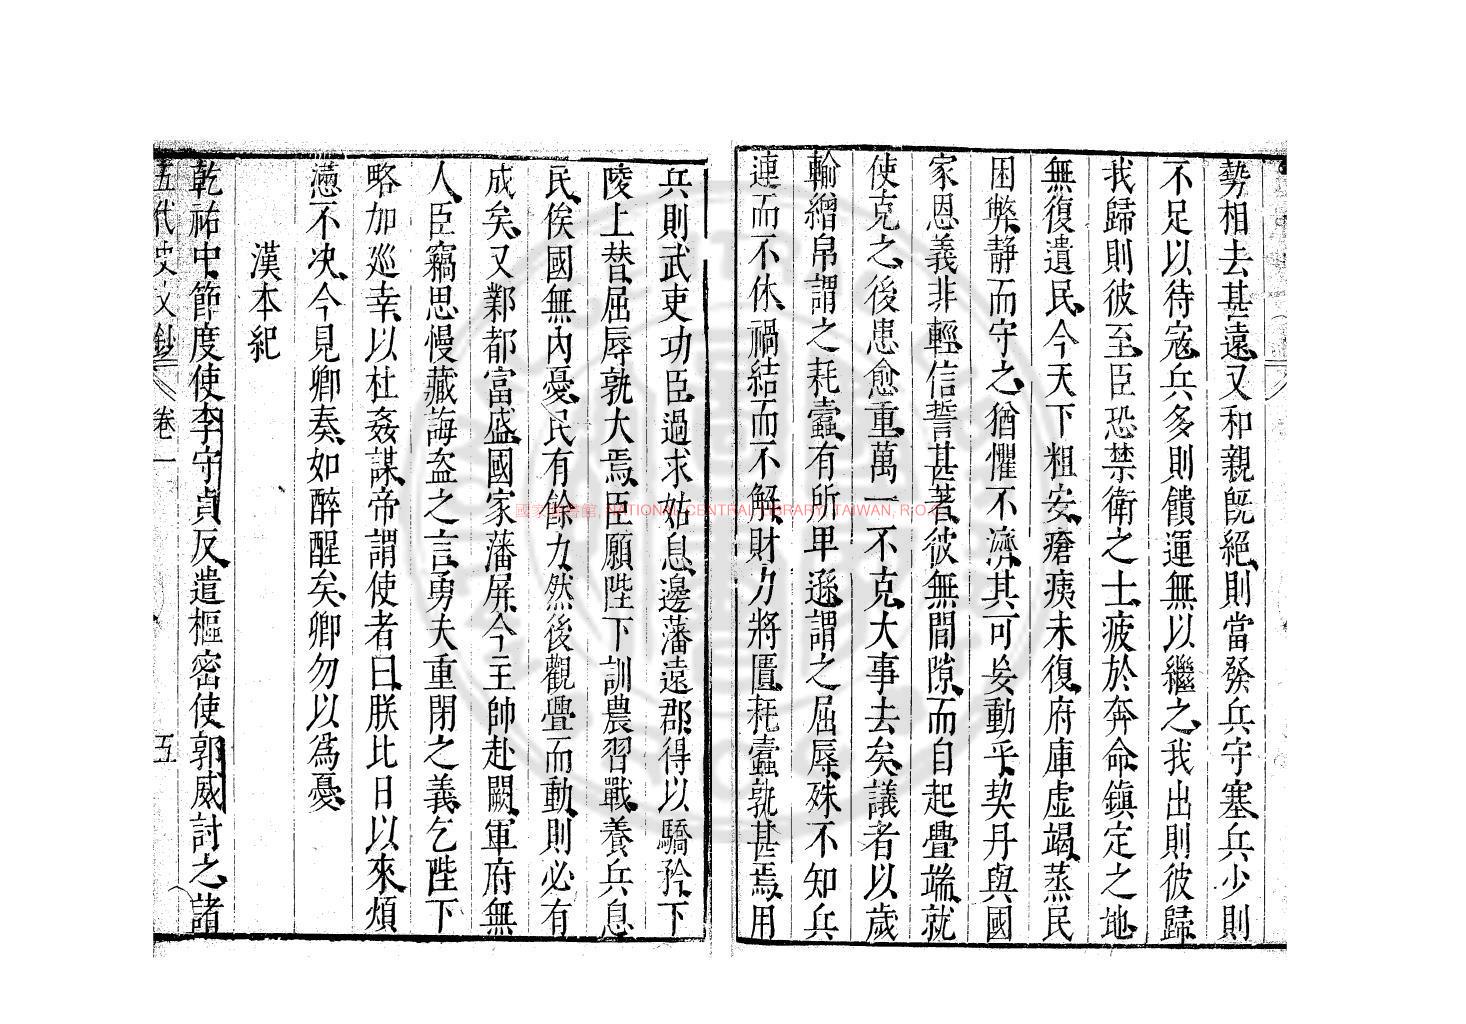 勢相去甚遠又和親旣絕則當發兵守塞兵少則
不足以待寇兵多則饋運無以繼之我出則彼歸
我歸則彼至臣恐禁衛之士疲於奔命鎮定之地
無復遺民今天下粗安瘡痍未復府庫虛竭蒸民
困弊靜而守之猶懼不濟其可妄動乎契丹與國
家恩義非輕信誓甚著彼無間隙而自起釁端就
使克之後患愈重萬一不克大事去矣議者以歲
輸繒帛謂之耗蠹有所卑遜謂之屈辱殊不知兵
連而不休禍結而不解財力將匱耗蠹孰甚焉用
兵則武吏功臣過求姑息邊藩遠郡得以驕矜下
陵上替屈辱孰大焉臣願陛下訓農習戰養兵息
民俟國無內憂民有餘力然後觀釁而動則必有
成矣又鄴都富盛國家藩屏今主帥赴闕軍府無
人臣竊思慢藏誨盜之言勇夫重閉之義乞陛下
略加巡幸以杜姦謀帝謂使者曰朕比日以來煩
懣不决今見卿奏如醉醒矣卿勿以為憂
漢本紀
乾祐中節度使李守貞反遣樞密使郭威討之諸
五代史文鈔 卷一 五
國家圖書館, NATIONAL CENTRAL LIBRARY, TAIWAN, R.O.C.